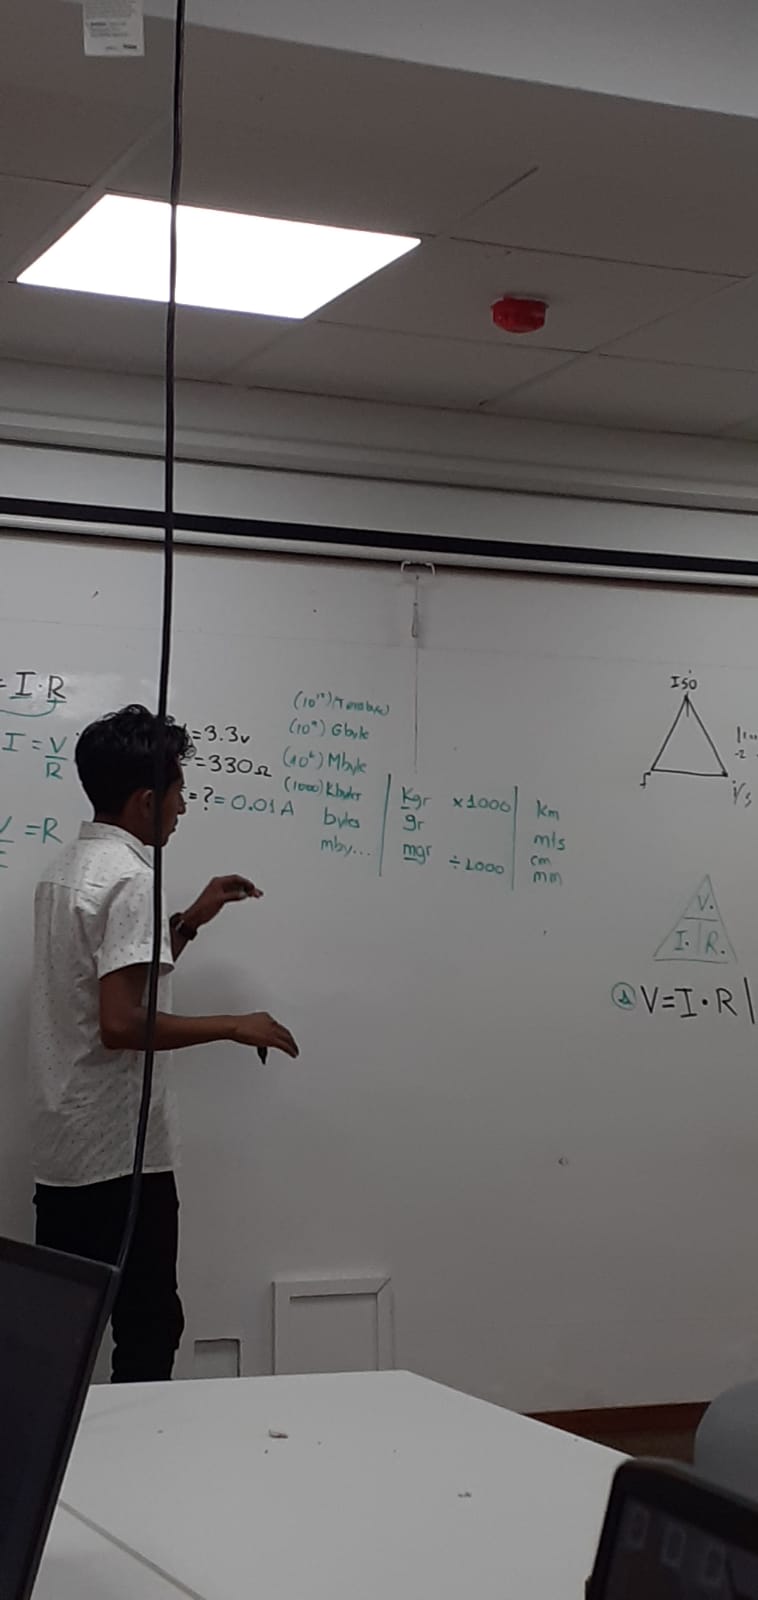 = I·R
I = V/R
V/I = R
= 3.3v
= 330Ω
= ? = 0.01A
(10¹²) Terabyte
(10⁹) Gbyte
(10⁶) Mbyte
(1000) Kbytes
bytes
mby...
Kgr x1000
gr
mgr ÷1000
km
mts
cm
mm
ISO
f
V.
I. R.
V=I·R